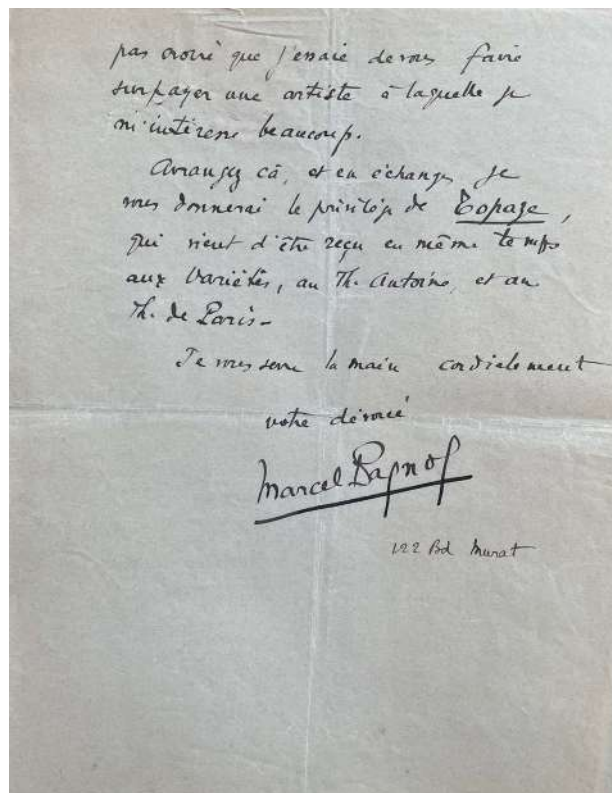 pas croire que j'essaie de vous faire
surpayer une artiste à laquelle je
m'intéresse beaucoup.
Arrangez çà, et en échange je
vous donnerai le privilège de Topaze,
qui vient d'être reçu en même temps
aux Variétés, au Th. Antoine, et au
Th. de Paris -
Je vous serre la main cordialement
votre dévoué
Marcel Pagnol
122 Bd Murat